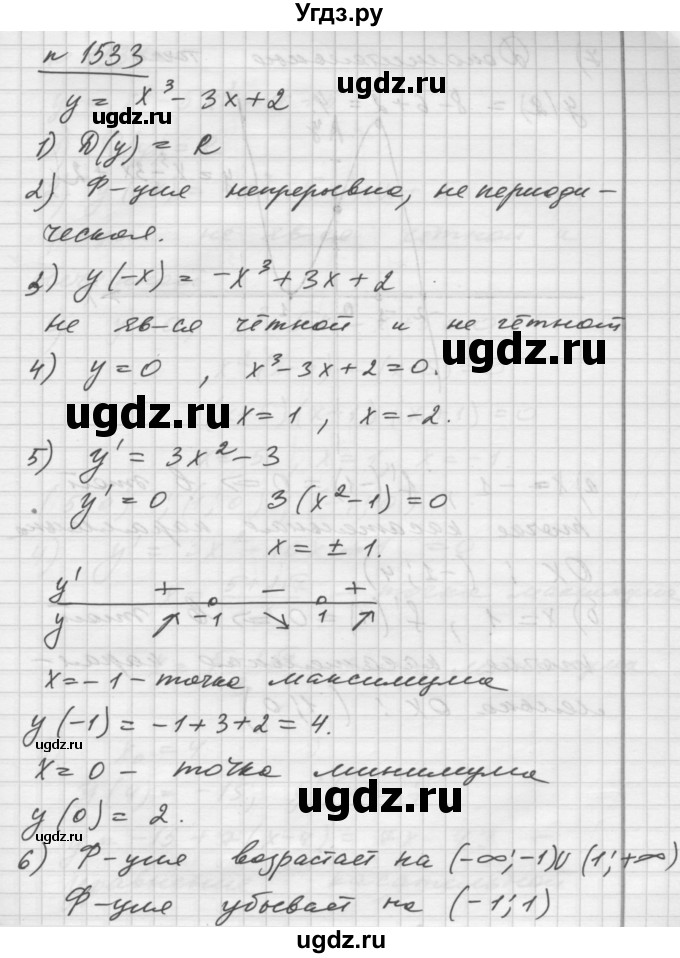 Угдз.ру
n 1533
ugdz.ru
y = x³ - 3x + 2
ugdz.ru
1) D(y) = R
ugdz.ru
2) Ф-ция непрерывна, не периоди-
ческая.
3) y(-x) = -x³ + 3x + 2
не яв-ся чётной и не чётной
ugdz.ru
4) y = 0 , x³ - 3x + 2 = 0.
ugdz.ru
x = 1 , x = -2.
5) y' = 3x² - 3
y' = 0 3(x² - 1) = 0
x = ± 1.
y' + - +
y ↗ -1 ↘ 1 ↗
x = -1 - точка максимума
y(-1) = -1 + 3 + 2 = 4.
ugdz.ru
x = 0 - точка минимума
ugdz.ru
y(0) = 2.
6) Ф-ция возрастает на (-∞; -1)∪(1; +∞)
Ф-ция убывает на (-1; 1)
ugdz.ru